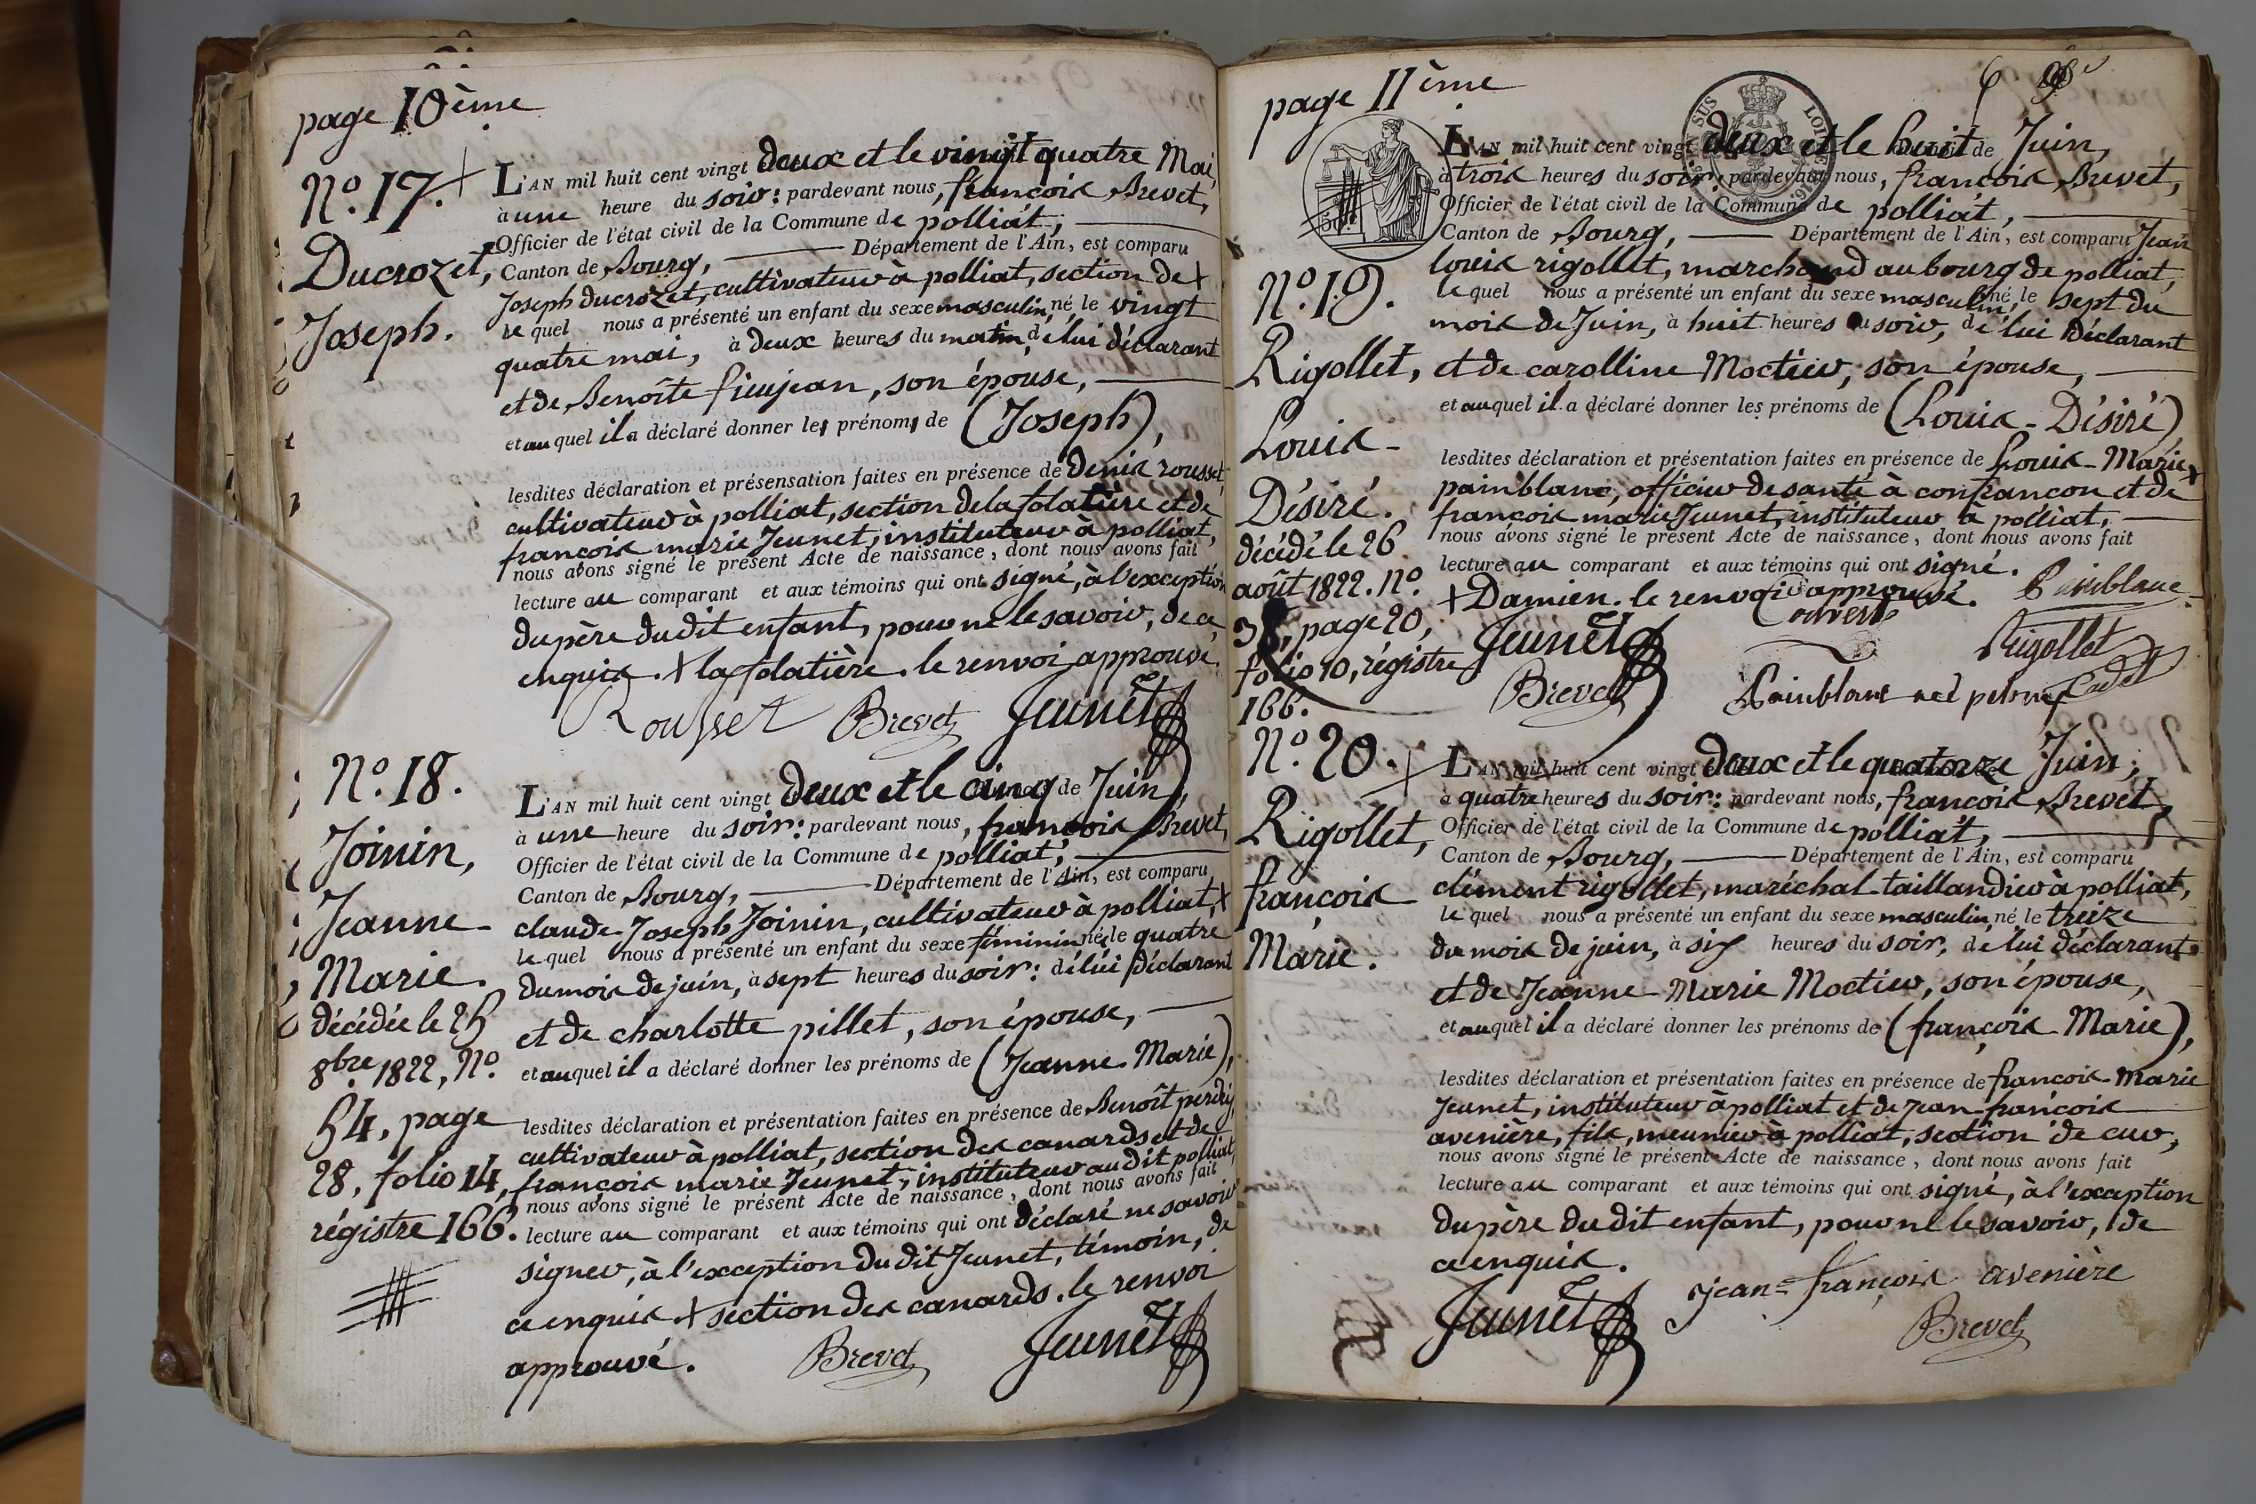 page 10ème
No. 17.
Ducrozet,
Joseph.
L'AN mil huit cent vingt deux et le vingt quatre Mai,
à une heure du soir: pardevant nous, françois Brevet,
Officier de l'état civil de la Commune de polliat,
Canton de Bourg, Département de l'Ain, est comparu
Joseph ducrozet, cultivateur à polliat, section de +
le quel nous a présenté un enfant du sexe masculin, né le vingt
quatre mai, à deux heures du matin, de lui déclarant
et de Benoîte, son épouse,
et au quel il a déclaré donner les prénoms de (Joseph),
lesdites déclaration et présensation faites en présence de denis rousset,
cultivateur à polliat, section de la folatière et de
françois marie Jeunet, instituteur à polliat,
nous avons signé le présent Acte de naissance, dont nous avons fait
lecture au comparant et aux témoins qui ont signé, à l'exception
du père du dit enfant, pour ne le savoir, de ce
enquis. + la folatière. le renvoi approuvé.
Rousset Brevet Jeunet
No. 18.
Joinin,
Jeanne-
Marie.
décédée le 25
8bre 1822, No.
54, page
28, folio 14,
régistre 166.
L'AN mil huit cent vingt deux et le cinq de Juin,
à une heure du soir: pardevant nous, françois Brevet,
Officier de l'état civil de la Commune de polliat,
Canton de Bourg, Département de l'Ain, est comparu
claude-Joseph Joinin, cultivateur à polliat, +
le quel nous a présenté un enfant du sexe féminin né le quatre
du mois de juin, à sept heures du soir: de lui déclarant
et de charlotte pillet, son épouse,
et au quel il a déclaré donner les prénoms de (Jeanne-Marie),
lesdites déclaration et présentation faites en présence de Benoît perdrix,
cultivateur à polliat, section des canards et de
françois marie Jeunet, instituteur au dit polliat,
nous avons signé le présent Acte de naissance, dont nous avons fait
lecture au comparant et aux témoins qui ont déclaré ne savoir
signer, à l'exception du dit Jeunet, témoin, de
ce enquis + section des canards. le renvoi
approuvé. Brevet Jeunet
page 11ème
6
No. 19.
Rigollet,
Louis-
Désiré.
décédé le 26
août 1822. No.
38, page 20,
folio 10, régistre
166.
L'AN mil huit cent vingt deux et le huit de Juin,
à trois heures du soir: pardevant nous, françois Brevet,
Officier de l'état civil de la Commune de polliat,
Canton de Bourg, Département de l'Ain, est comparu Jean
louis rigollet, marchand au bourg de polliat,
le quel nous a présenté un enfant du sexe masculin, né le sept du
mois de Juin, à huit heures du soir, de lui déclarant
et de carolline Moctier, son épouse,
et au quel il a déclaré donner les prénoms de (Louis-Désiré)
lesdites déclaration et présentation faites en présence de Louis-Marie +
painblanc, officier de santé à confrançon et de
françois marie Jeunet, instituteur à polliat,
nous avons signé le présent Acte de naissance, dont nous avons fait
lecture au comparant et aux témoins qui ont signé.
+ Damien. le renvoi approuvé. Painblanc
ouvert
Jeunet Rigollet
Cadet
Brevet Painblanc
No. 20.
Rigollet,
françois
Marie.
L'AN mil huit cent vingt deux et le quatorze Juin,
à quatre heures du soir: pardevant nous, françois Brevet,
Officier de l'état civil de la Commune de polliat,
Canton de Bourg, Département de l'Ain, est comparu
clément rigollet, maréchal-taillandier à polliat,
le quel nous a présenté un enfant du sexe masculin, né le treize
du mois de juin, à six heures du soir, de lui déclarant
et de Jeanne-Marie Moctier, son épouse,
et au quel il a déclaré donner les prénoms de (françois-Marie),
lesdites déclaration et présentation faites en présence de françois-Marie
Jeunet, instituteur à polliat et de jean-françois
avenière, fils, meunier à polliat, section de cur,
nous avons signé le présent Acte de naissance, dont nous avons fait
lecture au comparant et aux témoins qui ont signé, à l'exception
du père du dit enfant, pour ne le savoir, de
ce enquis.
Jeunet jean=françois avenière
Brevet